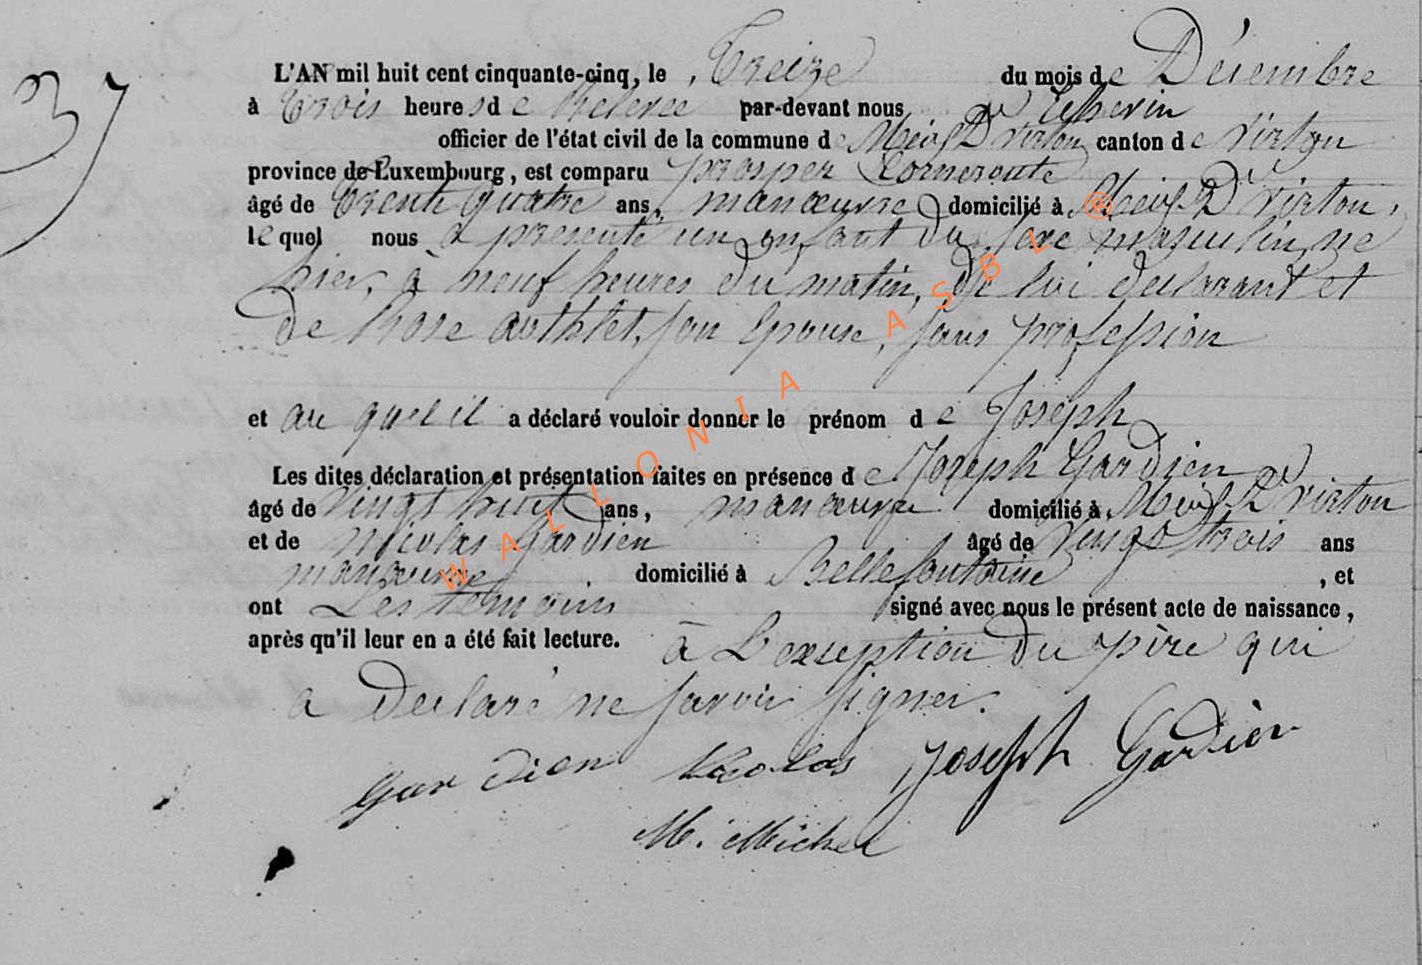 37
L'AN mil huit cent cinquante-cinq, le Treize du mois de Décembre
à Trois heures de Relevée par-devant nous
officier de l'état civil de la commune de Meix D virton canton de Virton
province de Luxembourg, est comparu prosper Cornerotte
âgé de Trente quatre ans, manœuvre domicilié à Meix D virton,
lequel nous a présenté un enfant du sexe masculin, né
hier, à neuf heures du matin, de lui déclarant et
de Rose authlet, son épouse, sans profession
et au quel il a déclaré vouloir donner le prénom de Joseph
Les dites déclaration et présentation faites en présence de Joseph Gardien
âgé de vingt huit ans, manœuvre domicilié à Meix D virton
et de Nicolas Gardien âgé de Vingt trois ans
manœuvre domicilié à Bellefontaine, et
ont Les témoins signé avec nous le présent acte de naissance,
après qu'il leur en a été fait lecture. à L'exception du père qui
a Déclaré ne savoir signer.
gardien Nicolas Joseph Gardien
M. Michel
WALLONIA ASBL ®